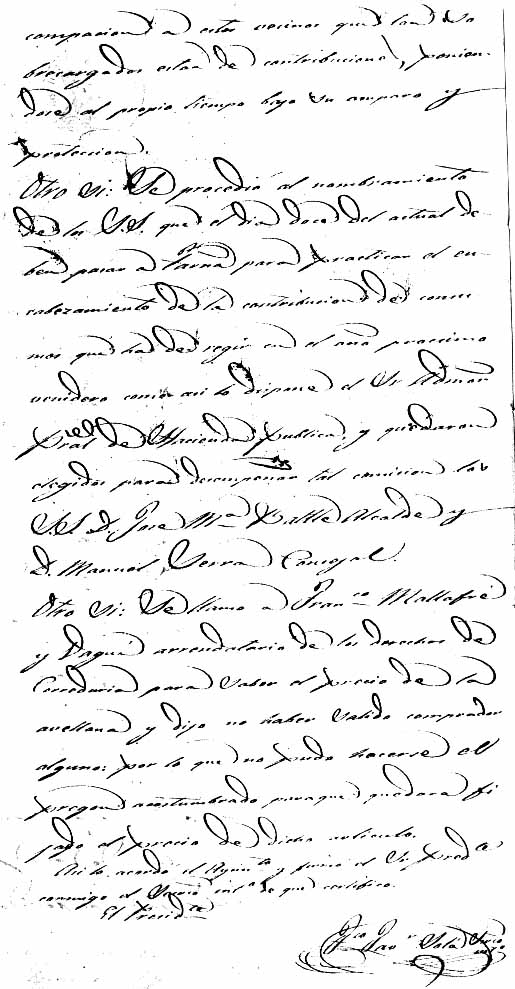 compasion á estos vecinos que tan so
brecargados estan de contribuciones, ponien-
dose al propio tiempo bajo su amparo y
proteccion.
Otro si: Se procedió al nombramiento
de los SS. que el dia doce del actual de-
ben pasar a Tarrna para practicar el en-
cabezamiento de la contribucion de consu
mos que ha de regir en el año procsimo
venidero como asi lo dispone el Sr Admor
Pral de Hacienda publica, y quedaron
elegidos para desempeñar tal comision los
S.S. D. Jose Ma Batlle Alcalde y
D. Manuel Serra Concejal.
Otro si: Se llamo a Franco Mallafré
y Dagui arrendatario de los derechos de
Correduria para saber el precio de la
avellana y dijo no haber salido comprador
alguno: por lo que no pudo hacerse el
pregon acostumbrado para que quedara fi
jado el precio de dicho articulo.
Asi lo acordó el Ayunto y firmó el Sr. Presdte
conmigo el Srio into de que certifico.
El Presidte
Sala Srio